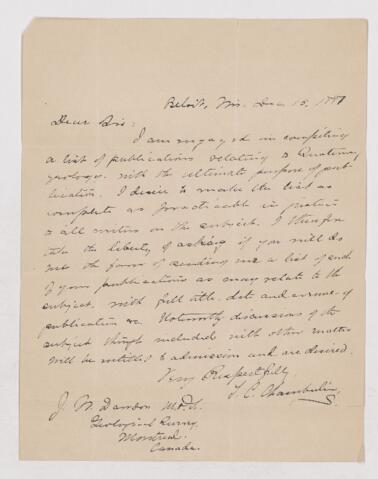 Beloit, Wis. Dec 15, 1887
Dear Sir:
I am engaged in compiling
a list of publications relating to Quaternary
geology with the ultimate purpose of pub-
lication. I desire to make the list as
complete as practicable in justice
to all writers on the subject. I therefore
take the liberty of asking if you will do
me the favor of sending me a list of such
of your publications as may relate to the
subject, with full title, date and avenue of
publication &c. Noteworthy discussions of the
subject though included with other matter
will be entitled to admission and are desired.
Very Respectfully
T. C. Chamberlin
J. W. Dawson
Geological Survey
Montreal
Canada.